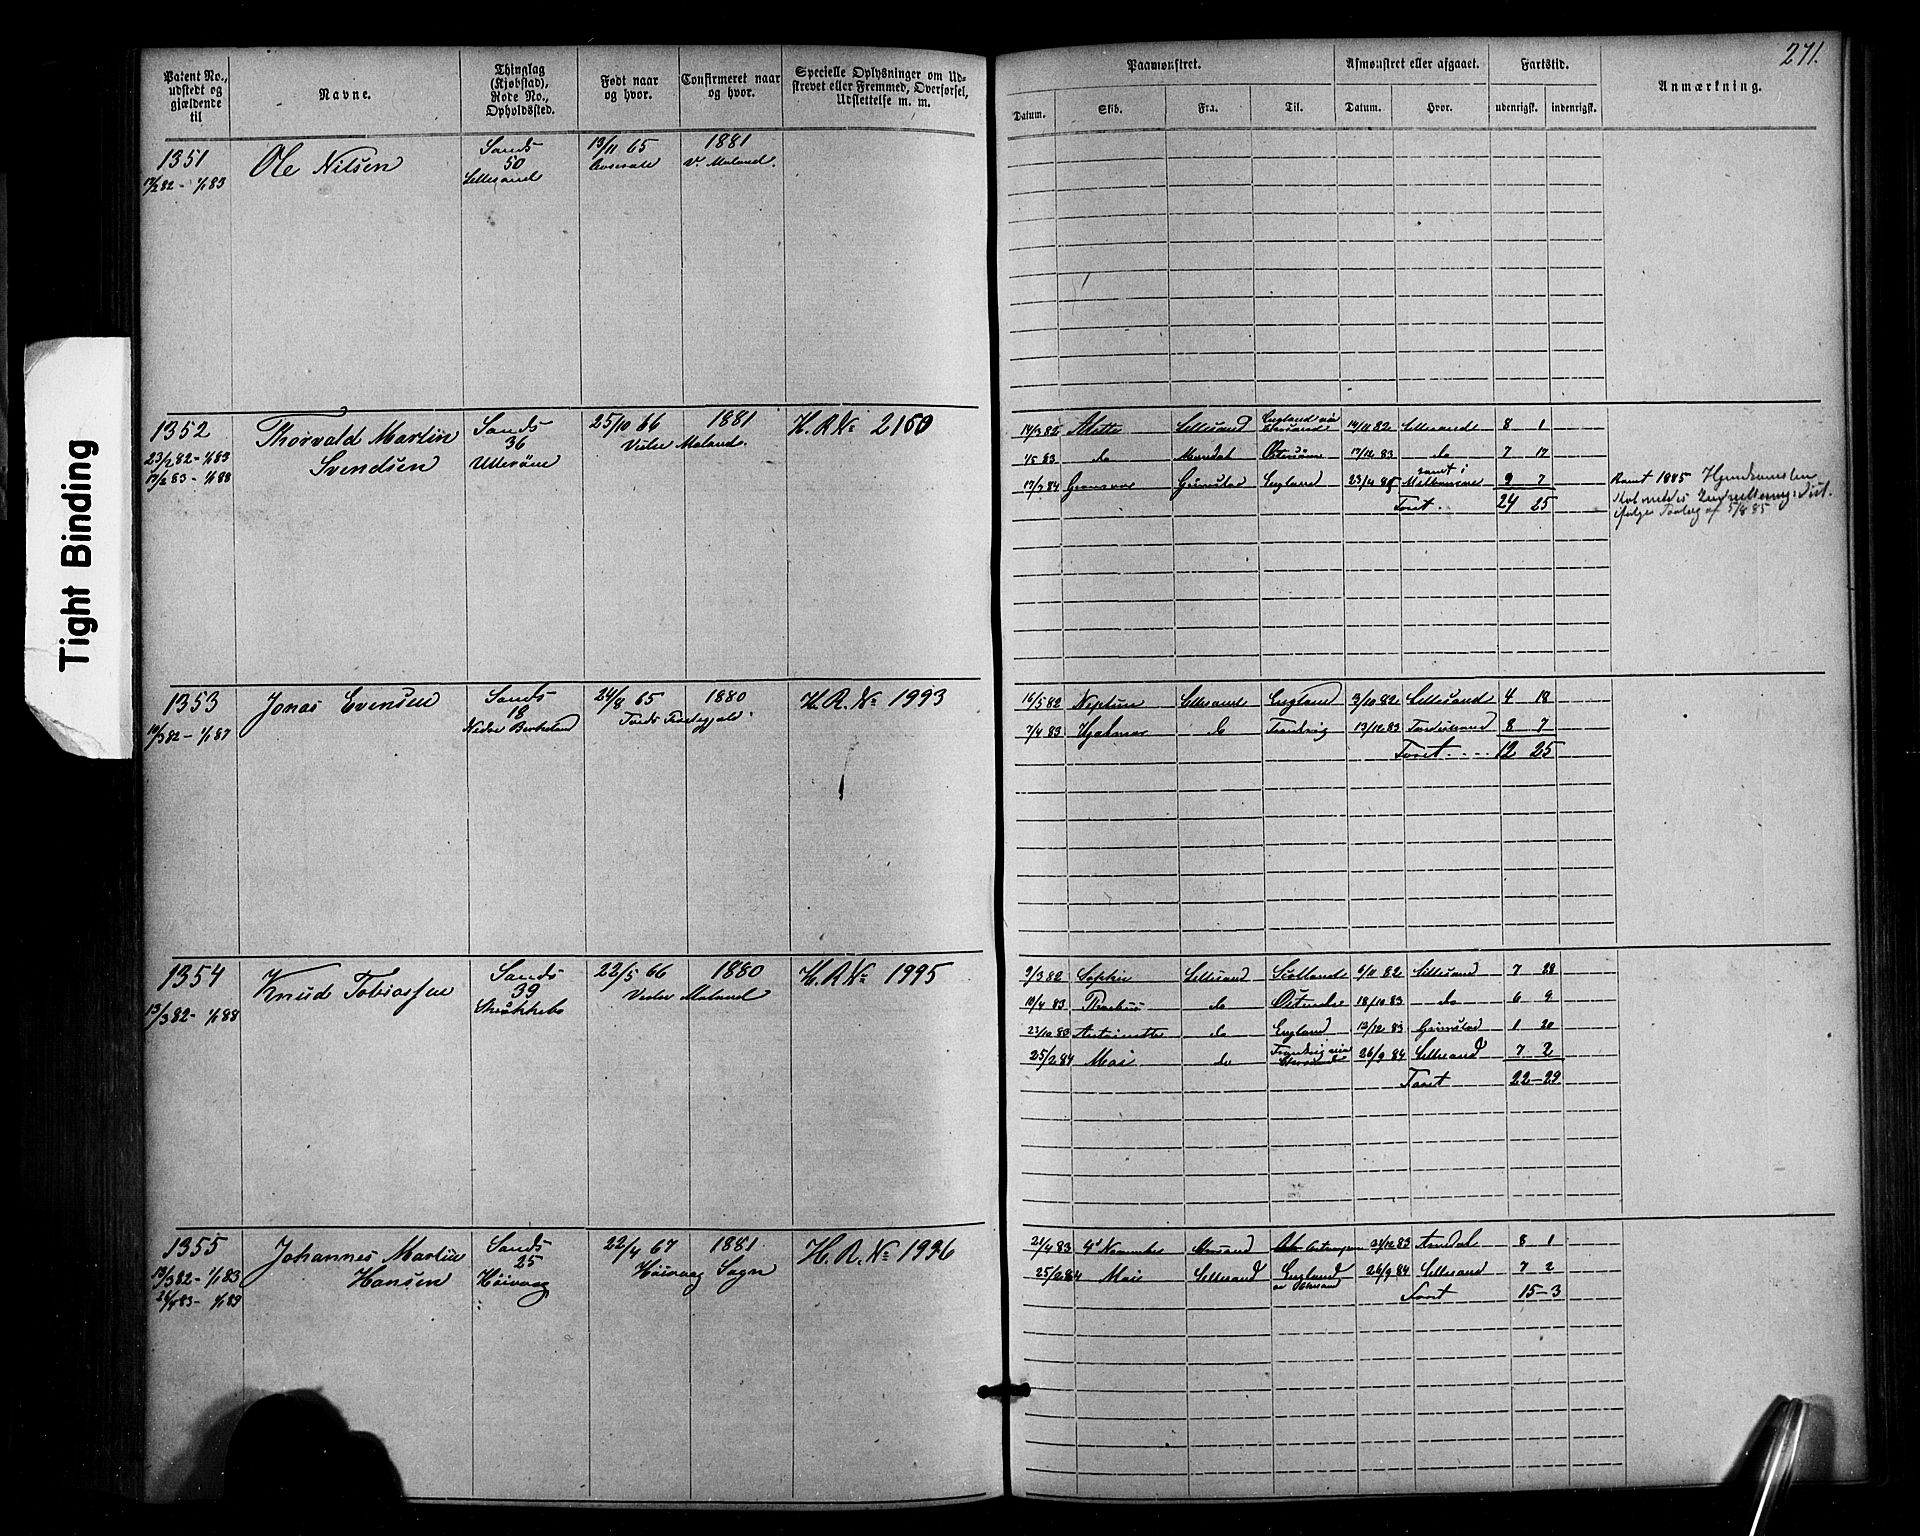 Tight Binding
271.
Patent No., udstedt og gjældende til
Navne.
Thinglag (Kjøbstad), Rode No., Opholdssted.
Født naar og hvor.
Confirmeret naar og hvor.
Specielle Oplysninger om Udstrevet eller Fremmed, Overførsel, Udslettelse m. m.
Paamønstret.
Afmønstret eller afgaaet.
Fartstid.
Anmærkning.
Datum.
Skib.
Fra.
Til.
Datum.
Hvor.
udenrigsk.
indenrigsk.
1351
17/2 82 - 1/1 83
Ole Nilsen
Sands
50
Lillesand
13/11 65
1881
V. Moland.
1352
23/2 82 - 1/1 83
17/2 83 - 1/1 88
Thorvald Martin
Svendsen
Sands
36
Ulleröen
25/10 66
1881
Vestre Moland.
H. R. No 2150
14/3 82 Alette Lillesand England via 14/11 82 Lillesand 8 1
1/5 83 do Mandal Östersöen 17/12 83 do 7 17
17/3 84 Gransvar Grimstad England 23/4 85 rømt i Melbourne 9 7
Faret. 24 25
Rømt 1885
ifølge 5/8 85
1353
10/3 82 - 1/1 87
Jonas Evensen
Sands
18
Nedre Berkeland
24/8 65
1880
H. R. No 1993
16/5 82 Neptun Lillesand England 3/10 82 Lillesand 4 18
7/4 83 Hjalmar do 13/12 83 8 7
Faret 12 25
1354
13/3 82 - 1/1 88
Knud Tobiassen
Sands
39
22/5 66
1880
Vestre Moland
H. R. No 1995
9/3 82 Sophie Lillesand Scotland 6/11 82 Lillesand 7 28
10/4 83 do Östende 18/10 83 do 6 9
23/10 83 Antoinette do England 12/12 83 Grimstad 1 20
25/2 84 Mai do 26/9 84 Lillesand 7 2
Faret 22 - 29
1355
13/3 82 - 1/1 83
21/4 83 - 1/1 89
Johannes Martin
Hansen
Sands
25
Höivaag
22/4 67
1881
Höivaag Sogn
H. R. No 1996
21/4 83 4de November 21/12 83 Arendal 8 1
25/2 84 Mai Lillesand England 26/9 84 Lillesand 7 2
Faret 15 - 3